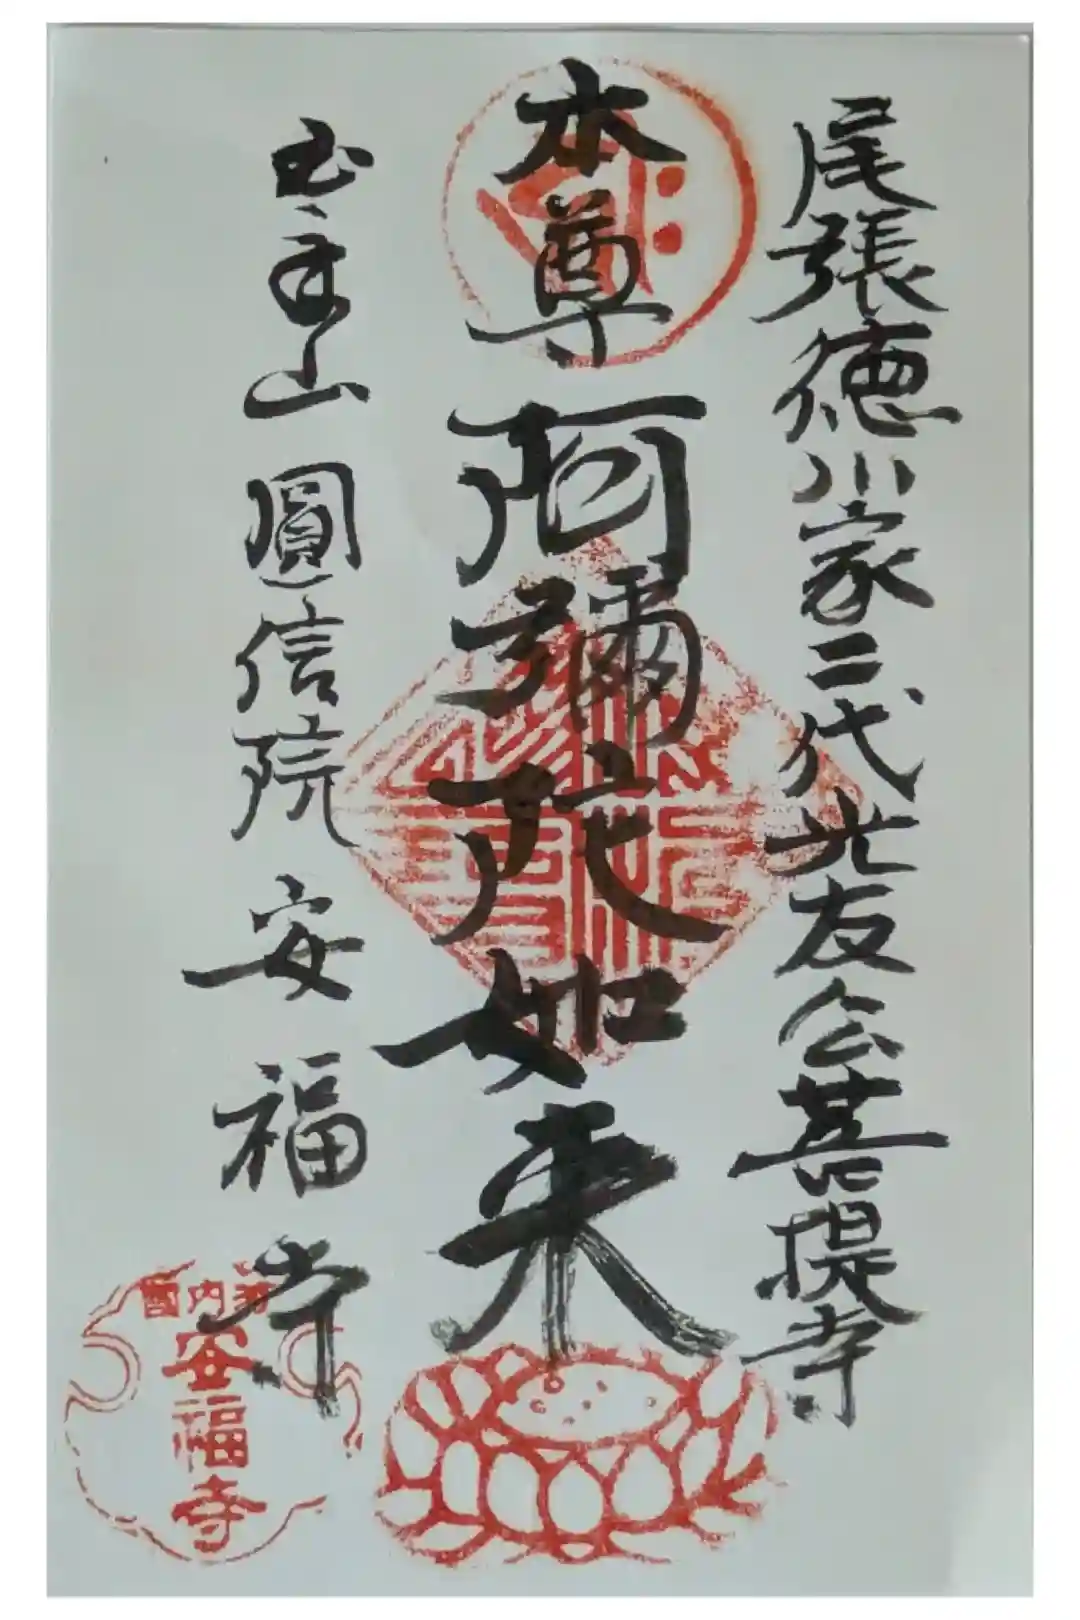 尾張徳川家二代光友公菩提寺
本尊 阿彌陀如来
玉手山 圓信院 安福寺
河内国
安福寺